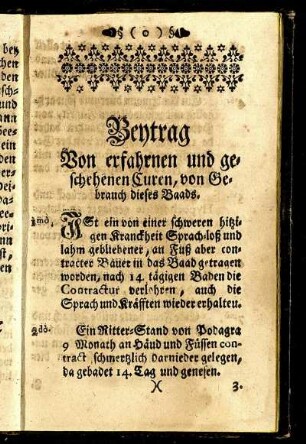 § ( o ) §
Beytrag
Von erfahrnen und ge-
schehenen Curen, von Ge-
brauch dieses Baads.
1mò, ISt ein von einer schweren hitzi-
gen Kranckheit Sprach-loß und
lahm gebliebener, an Fuß aber con-
tracter Bauer in das Baad getragen
worden, nach 14. tägigen Baden die
Contractur verlohren, auch die
Sprach und Kräfften wieder erhalten.
2dò. Ein Ritter-Stand von Podagra
9 Monath an Händ und Füssen con-
tract schmertzlich darnieder gelegen,
da gebadet 14. Tag und genesen.
)( 3.